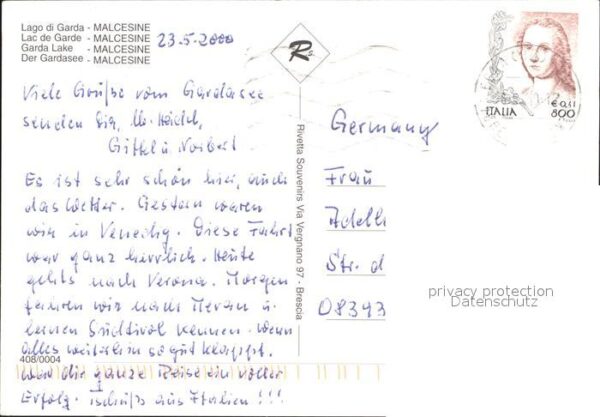 Lago di Garda - MALCESINE
Lac de Garde - MALCESINE
Garda Lake - MALCESINE
Der Gardasee - MALCESINE
23.5.2000
R
Rivetta Souvenirs Via Vergnano 97 - Brescia
€ 0,41
ITALIA 800
Viele Grüße vom Gardasee
senden Dir,
Gittel u Norbert
Es ist sehr schön hier, auch
das Wetter. Gestern waren
wir in Venedig. Diese Fahrt
war ganz herrlich. Heute
gehts nach Verona. Morgen
fahren wir nach Meran u.
lernen Südtirol kennen. Wenn
alles weiterhin so gut klappt.
wird die ganze Reise ein voller
Erfolg. Tschüß aus Italien !!!
408/0004
Germany
Frau
Adelh
Str. d
08393
privacy protection
Datenschutz